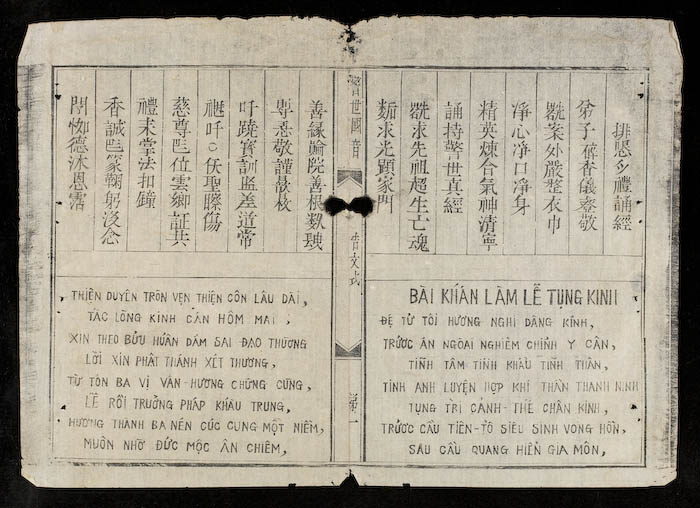 禮誦經
弟子香儀敬
案外嚴整衣巾
淨心淨口淨身
精英煉合氣神清寧
誦持警世真經
求先祖超生亡魂
求光顕家門
警世國音
告文式
善緣院善根
敬謹
吀蹺寳訓監差道常
吀伏聖傷
慈尊位雲鄉証共
禮耒掌法扣鐘
香誠鞠躬沒念
德沐恩霑
BÀI KHẤN LÀM LỄ TỤNG KINH
ĐỆ TỬ TÔI HƯƠNG NGHI DÂNG KÍNH,
TRƯỚC ÁN NGOÀI NGHIÊM CHỈNH Y CÂN,
TĨNH TÂM TĨNH KHẨU TĨNH THÂN,
TINH ANH LUYỆN HỢP KHÍ THẦN THANH NINH
TỤNG TRÌ CẢNH-THẾ CHÂN KINH,
TRƯỚC CẦU TIÊN-TỔ SIÊU SINH VONG HỒN,
SAU CẦU QUANG HIỂN GIA MÔN,
THIỆN DUYÊN TRÒN VẸN THIỆN CÔN LÂU DÀI,
TẤC LÒNG KÍNH CẨN HÔM MAI,
XIN THEO BỬU HUẤN DÁM SAI ĐẠO THƯỜNG
LỜI XIN PHẬT THÁNH XÉT THƯƠNG,
TỪ TÔN BA VỊ VÂN-HƯƠNG CHỨNG CÙNG,
LỄ RỒI TRƯỞNG PHÁP KHẤU TRUNG,
HƯƠNG THÀNH BA NÉN CÚC CUNG MỘT NIỀM,
MUÔN NHỜ ĐỨC MỘC ÂN CHIÊM,